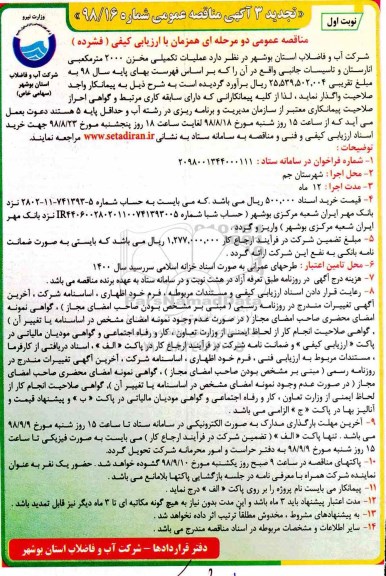 وزارت نیرو
شرکت آب و فاضلاب استان بوشهر
(سهامی خاص)
«تجدید ۳ آگهی مناقصه عمومی شماره ۹۸/۱۶»
نوبت اول
مناقصه عمومی دو مرحله ای همزمان با ارزیابی کیفی ( فشرده )
شرکت آب و فاضلاب استان بوشهر در نظر دارد عملیات تکمیلی مخزن ۲۰۰۰ مترمکعبی
انارستان و تاسیسات جانبی واقع در آن را که بر اساس فهرست بهای پایه سال ۹۸ به
مبلغ تقریبی ۲۵,۵۳۹,۵۰۲,۰۰۴ ریال برآورد گردیده است به شرح ذیل به پیمانکار واجد
صلاحیت واگذار نماید ، لذا از کلیه پیمانکارانی که دارای سابقه کاری مرتبط و گواهی احراز
صلاحیت پیمانکاری معتبر از سازمان مدیریت و برنامه ریزی در رشته آب و حداقل پایه ۵ هستند دعوت بعمل
می آید که از ساعت ۱۵ روز شنبه مورخ ۹۸/۸/۱۸ لغایت ساعت ۱۸ روز پنجشنبه مورخ ۹۸/۸/۲۳ جهت خرید
اسناد ارزیابی کیفی و فنی و مناقصه به سامانه ستاد به نشانی www.setadiran.ir مراجعه نمایند.
توضیحات :
۱- شماره فراخوان در سامانه ستاد : ۲۰۹۸۰۰۱۳۴۴۰۰۰۱۱۱
۲- محل اجرا : شهرستان جم
۳- مدت اجرا : ۱۲ ماه
۴- قیمت خرید اسناد ۵۰۰,۰۰۰ ریال می باشد .که می بایست به حساب شماره ۵-۷۴۱۳۹۳-۱۱-۲۸۰۲ نزد
بانک مهر ایران شعبه مرکزی بوشهر ( حساب شبا شماره IR۴۴۰۶۰۰۲۸۰۲۰۱۱۰۰۷۴۱۳۹۳۰۰۵ نزد بانک مهر
ایران شعبه مرکزی بوشهر ) واریز گردد
۵- مبلغ تضمین شرکت در فرآیند ارجاع کار ۱,۲۷۷,۰۰۰,۰۰۰ ریال می باشد که بایستی به صورت ضمانت
نامه بانکی به نفع این شرکت ارائه گردد .
۶- محل تامین اعتبار : طرحهای عمرانی به صورت اسناد خزانه اسلامی سررسید سال ۱۴۰۰
۷- هزینه درج آگهی در روزنامه طبق تعرفه آزاد در هشت نوبت و در سامانه ستاد به عهده برنده مناقصه می باشد .
۸- رعایت قرار دادن اسناد ارزیابی کیفی ، مستندات مربوطه ، فرم خود اظهاری ، اساسنامه شرکت ، آخرین
آگهی تغییرات مندرج در روزنامه رسمی ( مبنی بر مشخص بودن صاحب امضای مجاز ) ، گواهی نمونه
امضای محضری صاحب امضای مجاز ( در صورت عدم وجود نمونه امضای مشخص در اساسنامه یا تغییر آن )
، گواهی صلاحیت انجام کار از لحاظ ایمنی از وزارت تعاون ، کار و رفاه اجتماعی و گواهی مودیان مالیاتی در
پاکت « ارزیابی کیفی » و ضمانت نامه شرکت در فرآیند ارجاع کار در پاکت « الف » ، اسناد دریافتی از کارفرما
، مستندات مربوط به ارزیابی فنی ، فرم خود اظهاری ، اساسنامه شرکت ، آخرین آگهی تغییرات مندرج در
روزنامه رسمی ( مبنی بر مشخص بودن صاحب امضای مجاز ) ، گواهی نمونه امضای محضری صاحب امضای
مجاز ( در صورت عدم وجود نمونه امضای مشخص در اساسنامه یا تغییر آن )، گواهی صلاحیت انجام کار از
لحاظ ایمنی از وزارت تعاون ، کار و رفاه اجتماعی و گواهی مودیان مالیاتی در پاکت « ب » و پیشنهاد قیمت و
آنالیز بها در پاکت « ج » الزامی می باشد.
۹- آخرین مهلت بارگذاری مدارک به صورت الکترونیکی در سامانه ستاد تا ساعت ۱۵ روز شنبه مورخ ۹۸/۹/۹
می باشد . تنها پاکت « الف » ( تضمین شرکت در فرآیند ارجاع کار ) می بایست به صورت فیزیکی تا ساعت
۱۵ روز شنبه مورخ ۹۸/۹/۹ به دفتر حراست و امور محرمانه شرکت تحویل گردد.
۱۰- پاکتهای مناقصه در ساعت ۹ صبح روز یکشنبه مورخ ۹۸/۹/۱۰ گشوده خواهد شد . حضور یک نفر به عنوان
نماینده شرکت همراه با معرفی نامه در جلسه بازگشایی پاکتها بلامانع می باشد .
۱۱- پیمانکار می بایست نام پروژه را بر روی پاکت « الف » درج نماید .
۱۲- مدت اعتبار پیشنهاد باید ۳ ماه باشد و این مدت بدون نیاز به هیچ گونه مکاتبه ای تا ۳ ماه دیگر نیز قابل تمدید باشد .
۱۳- به پیشنهادهای مشروط ، مخدوش مطلقاً ترتیب اثر داده نخواهد شد .
۱۴- سایر اطلاعات و مشخصات مربوطه در اسناد مناقصه مندرج می باشد .
دفتر قراردادها – شرکت آب و فاضلاب استان بوشهر